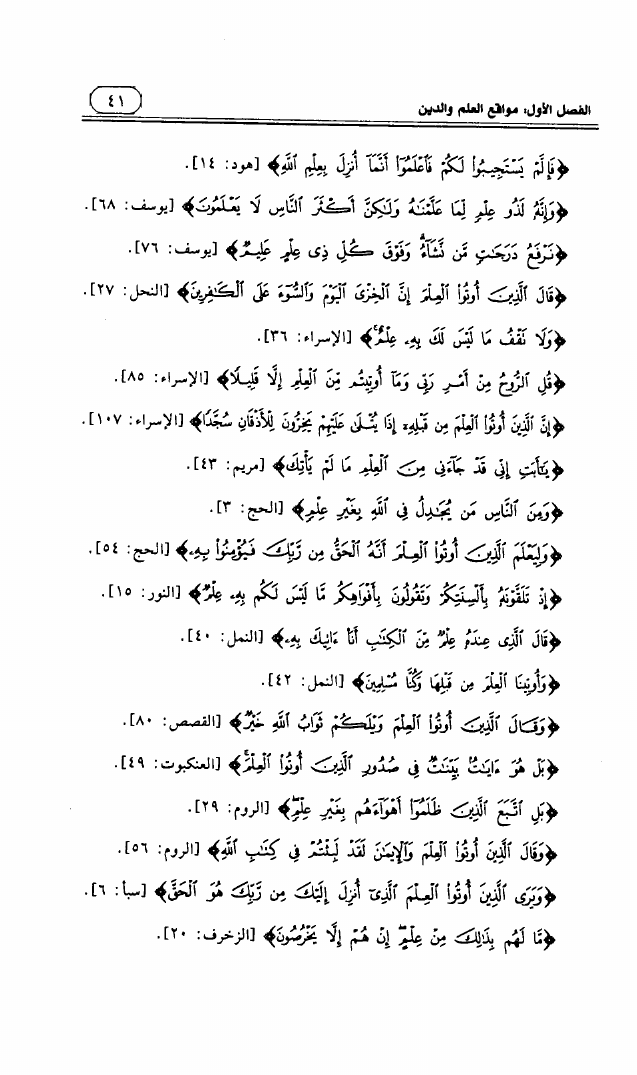 الفصل الأول: مواقع العلم والدين
٤١
﴿فَإِلَّمْ يَسْتَجِيبُوا۟ لَكُمْ فَٱعْلَمُوٓا۟ أَنَّمَآ أُنزِلَ بِعِلْمِ ٱللَّهِ﴾ [هود: ١٤].
﴿وَإِنَّهُۥ لَذُو عِلْمٍ لِّمَا عَلَّمْنَٰهُ وَلَٰكِنَّ أَكْثَرَ ٱلنَّاسِ لَا يَعْلَمُونَ﴾ [يوسف: ٦٨].
﴿نَرْفَعُ دَرَجَٰتٍ مَّن نَّشَآءُ ۗ وَفَوْقَ كُلِّ ذِى عِلْمٍ عَلِيمٌ﴾ [يوسف: ٧٦].
﴿قَالَ ٱلَّذِينَ أُوتُوا۟ ٱلْعِلْمَ إِنَّ ٱلْخِزْىَ ٱلْيَوْمَ وَٱلسُّوٓءَ عَلَى ٱلْكَٰفِرِينَ﴾ [النحل: ٢٧].
﴿وَلَا تَقْفُ مَا لَيْسَ لَكَ بِهِۦ عِلْمٌ ۚ﴾ [الإسراء: ٣٦].
﴿قُلِ ٱلرُّوحُ مِنْ أَمْرِ رَبِّى وَمَآ أُوتِيتُم مِّنَ ٱلْعِلْمِ إِلَّا قَلِيلًا﴾ [الإسراء: ٨٥].
﴿إِنَّ ٱلَّذِينَ أُوتُوا۟ ٱلْعِلْمَ مِن قَبْلِهِۦٓ إِذَا يُتْلَىٰ عَلَيْهِمْ يَخِرُّونَ لِلْأَذْقَانِ سُجَّدًا﴾ [الإسراء: ١٠٧].
﴿يَٰٓأَبَتِ إِنِّى قَدْ جَآءَنِى مِنَ ٱلْعِلْمِ مَا لَمْ يَأْتِكَ﴾ [مريم: ٤٣].
﴿وَمِنَ ٱلنَّاسِ مَن يُجَٰدِلُ فِى ٱللَّهِ بِغَيْرِ عِلْمٍ﴾ [الحج: ٣].
﴿وَلِيَعْلَمَ ٱلَّذِينَ أُوتُوا۟ ٱلْعِلْمَ أَنَّهُ ٱلْحَقُّ مِن رَّبِّكَ فَيُؤْمِنُوا۟ بِهِۦ﴾ [الحج: ٥٤].
﴿إِذْ تَلَقَّوْنَهُۥ بِأَلْسِنَتِكُمْ وَتَقُولُونَ بِأَفْوَاهِكُم مَّا لَيْسَ لَكُم بِهِۦ عِلْمٌ﴾ [النور: ١٥].
﴿قَالَ ٱلَّذِى عِندَهُۥ عِلْمٌ مِّنَ ٱلْكِتَٰبِ أَنَا۠ ءَاتِيكَ بِهِۦ﴾ [النمل: ٤٠].
﴿وَأُوتِينَا ٱلْعِلْمَ مِن قَبْلِهَا وَكُنَّا مُسْلِمِينَ﴾ [النمل: ٤٢].
﴿وَقَالَ ٱلَّذِينَ أُوتُوا۟ ٱلْعِلْمَ وَيْلَكُمْ ثَوَابُ ٱللَّهِ خَيْرٌ﴾ [القصص: ٨٠].
﴿بَلْ هُوَ ءَايَٰتٌۢ بَيِّنَٰتٌ فِى صُدُورِ ٱلَّذِينَ أُوتُوا۟ ٱلْعِلْمَ ۚ﴾ [العنكبوت: ٤٩].
﴿بَلِ ٱتَّبَعَ ٱلَّذِينَ ظَلَمُوٓا۟ أَهْوَآءَهُم بِغَيْرِ عِلْمٍ ۖ﴾ [الروم: ٢٩].
﴿وَقَالَ ٱلَّذِينَ أُوتُوا۟ ٱلْعِلْمَ وَٱلْإِيمَٰنَ لَقَدْ لَبِثْتُمْ فِى كِتَٰبِ ٱللَّهِ﴾ [الروم: ٥٦].
﴿وَيَرَى ٱلَّذِينَ أُوتُوا۟ ٱلْعِلْمَ ٱلَّذِىٓ أُنزِلَ إِلَيْكَ مِن رَّبِّكَ هُوَ ٱلْحَقَّ﴾ [سبأ: ٦].
﴿مَّا لَهُم بِذَٰلِكَ مِنْ عِلْمٍ ۖ إِنْ هُمْ إِلَّا يَخْرُصُونَ﴾ [الزخرف: ٢٠].